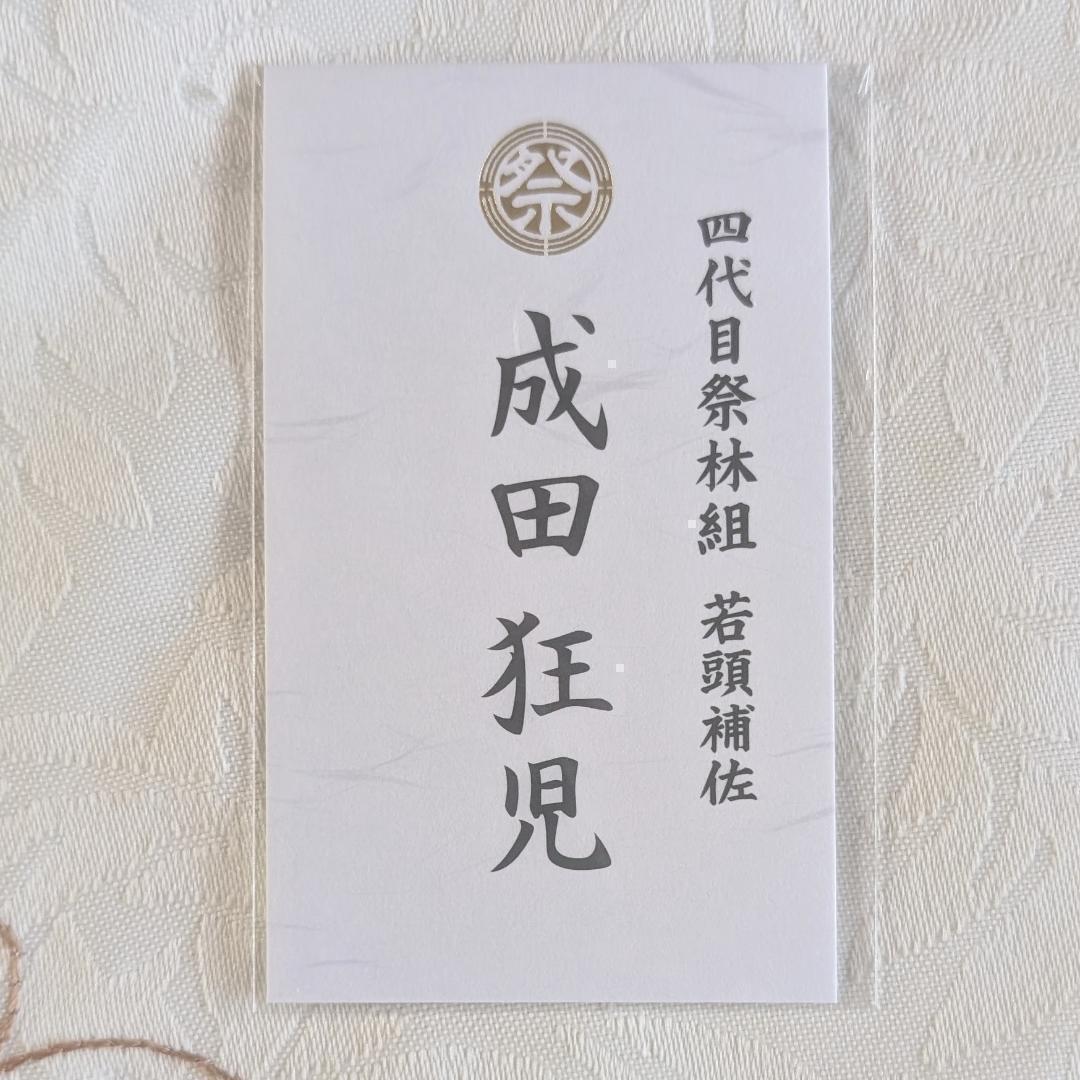 四代目祭林組 若頭補佐
祭
成田狂児